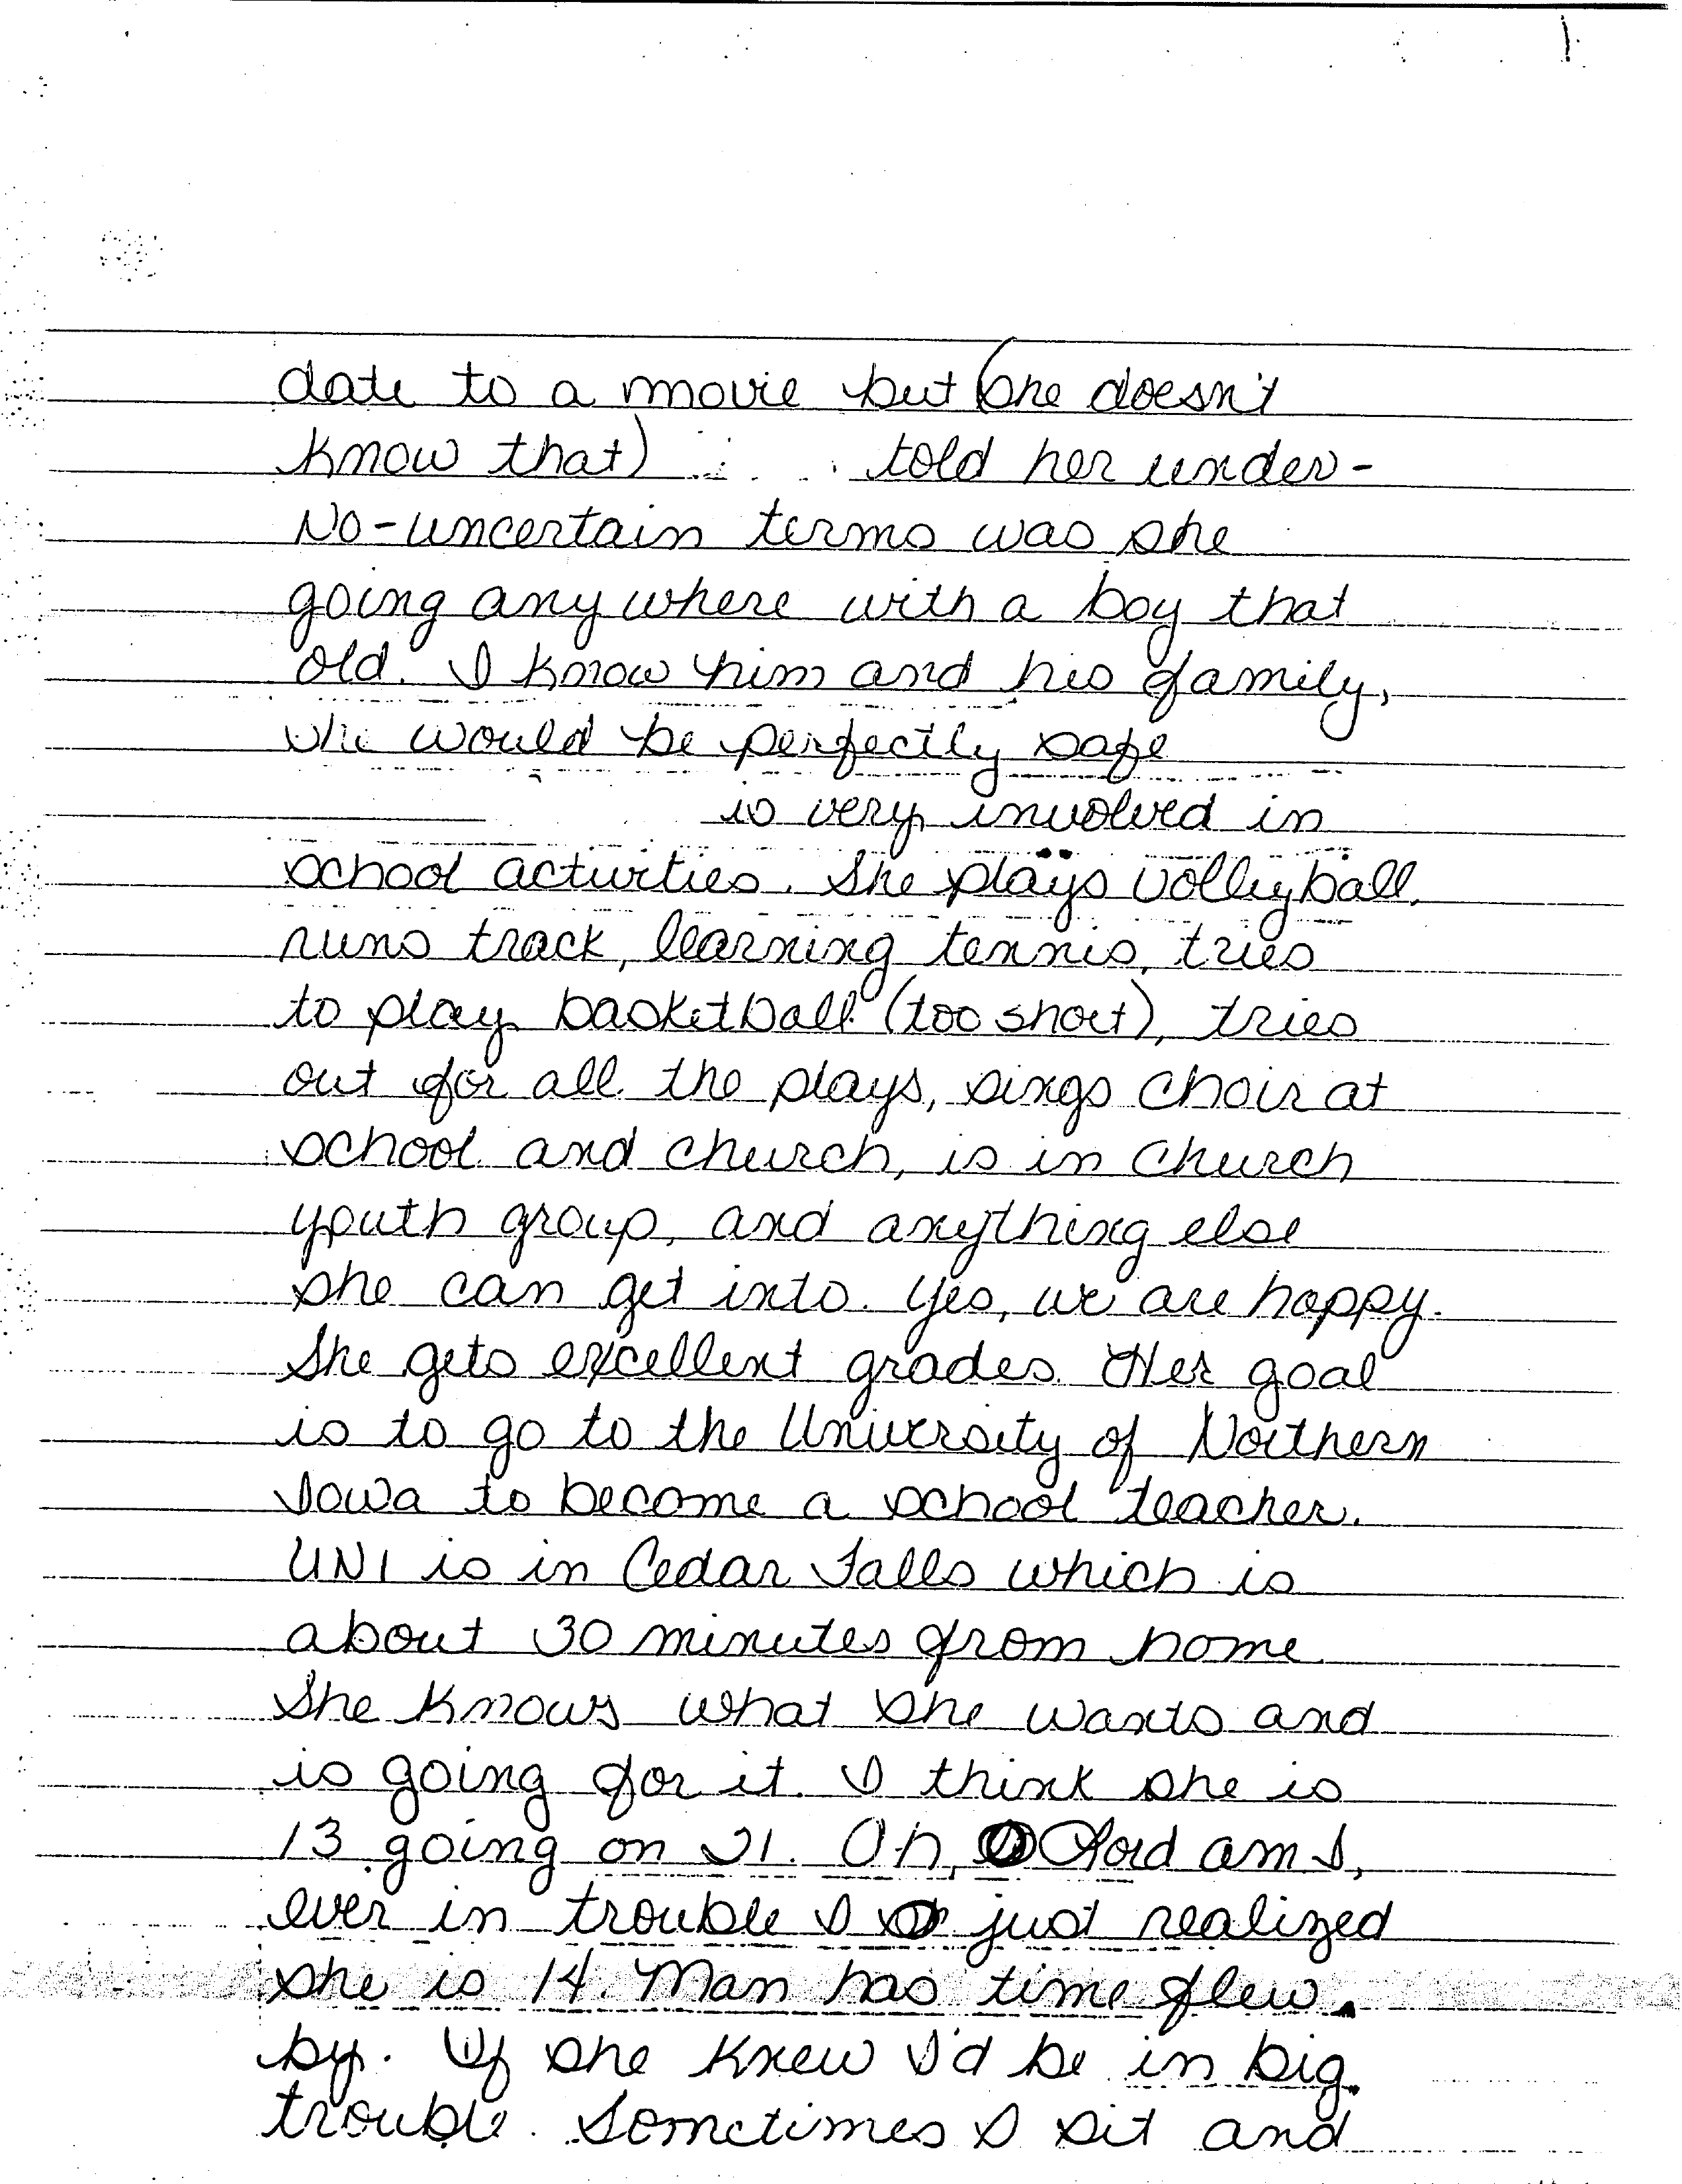 date to a movie but (she doesn't
know that) told her under-
No-uncertain terms was she
going anywhere with a boy that
old. I know him and his family,
she would be perfectly safe
is very involved in
school activities. She plays volleyball,
runs track, learning tennis, tries
to play basketball (too short), tries
out for all the plays, sings choir at
school and church, is in church
youth group, and anything else
she can get into. Yes, we are happy.
She gets excellent grades. Her goal
is to go to the University of Northern
Iowa to become a school teacher.
UNI is in Cedar Falls which is
about 30 minutes from home.
She knows what she wants and
is going for it. I think she is
13 going on 21. Oh, Lord am I,
ever in trouble I just realized
she is 14. Man has time flew
by. If she knew I'd be in big
trouble. Sometimes I sit and